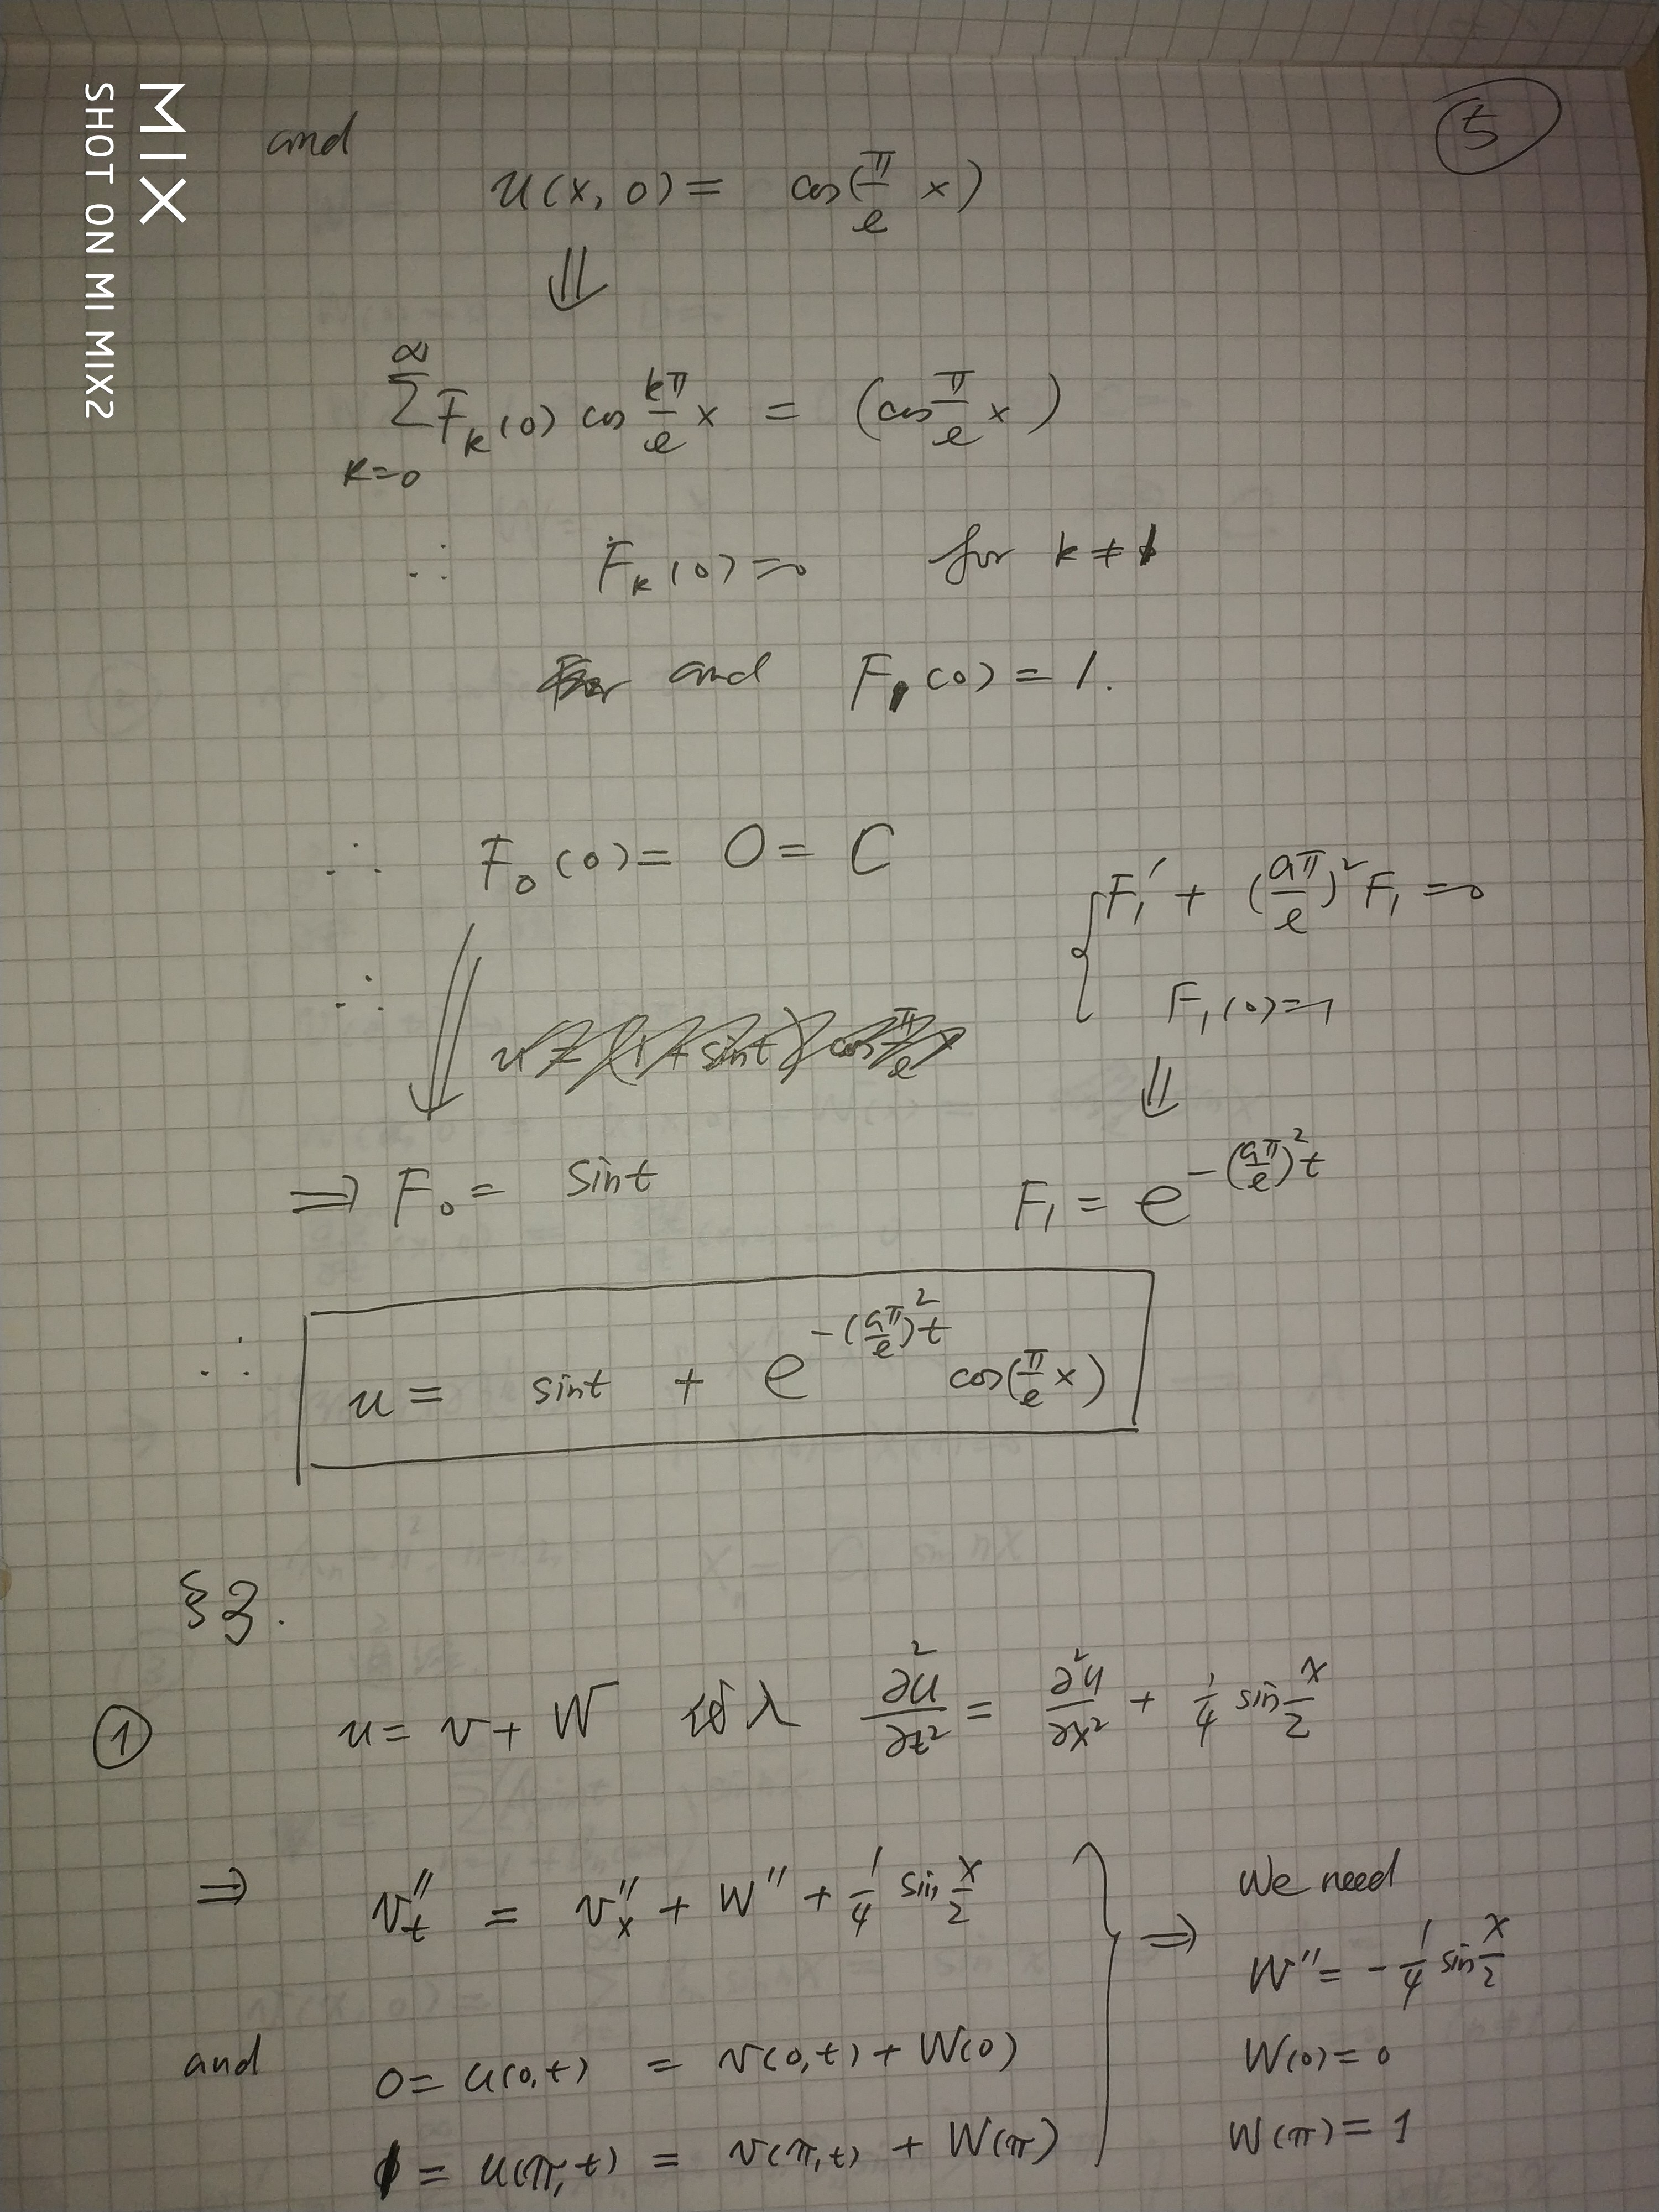 MIX
SHOT ON MI MIX2
⑤
and
u(x, 0) = cos(π/ℓ x)
⇓
∑_{k=0}^{∞} F_k(0) cos kπ/ℓ x = (cos π/ℓ x)
∴ F_k(0)=0 for k ≠ 1
and F_1(0) = 1.
∴ F_0(0) = 0 = C
{ F_1' + (aπ/ℓ)² F_1 = 0
F_1(0)=1
∴ u = (1 + sint) cos π/ℓ x
⇓
⇒ F_0 = sint
F_1 = e^{-(aπ/ℓ)² t}
∴ u = sint + e^{-(aπ/ℓ)² t} cos(π/ℓ x)
§3.
① u = v + W 代入 ∂²u/∂t² = ∂²u/∂x² + 1/4 sin x/2
⇒ v_t'' = v_x'' + W'' + 1/4 sin x/2
and 0 = u(0,t) = v(0,t) + W(0)
1 = u(π,t) = v(π,t) + W(π)
} ⇒ We need
W'' = - 1/4 sin x/2
W(0) = 0
W(π) = 1